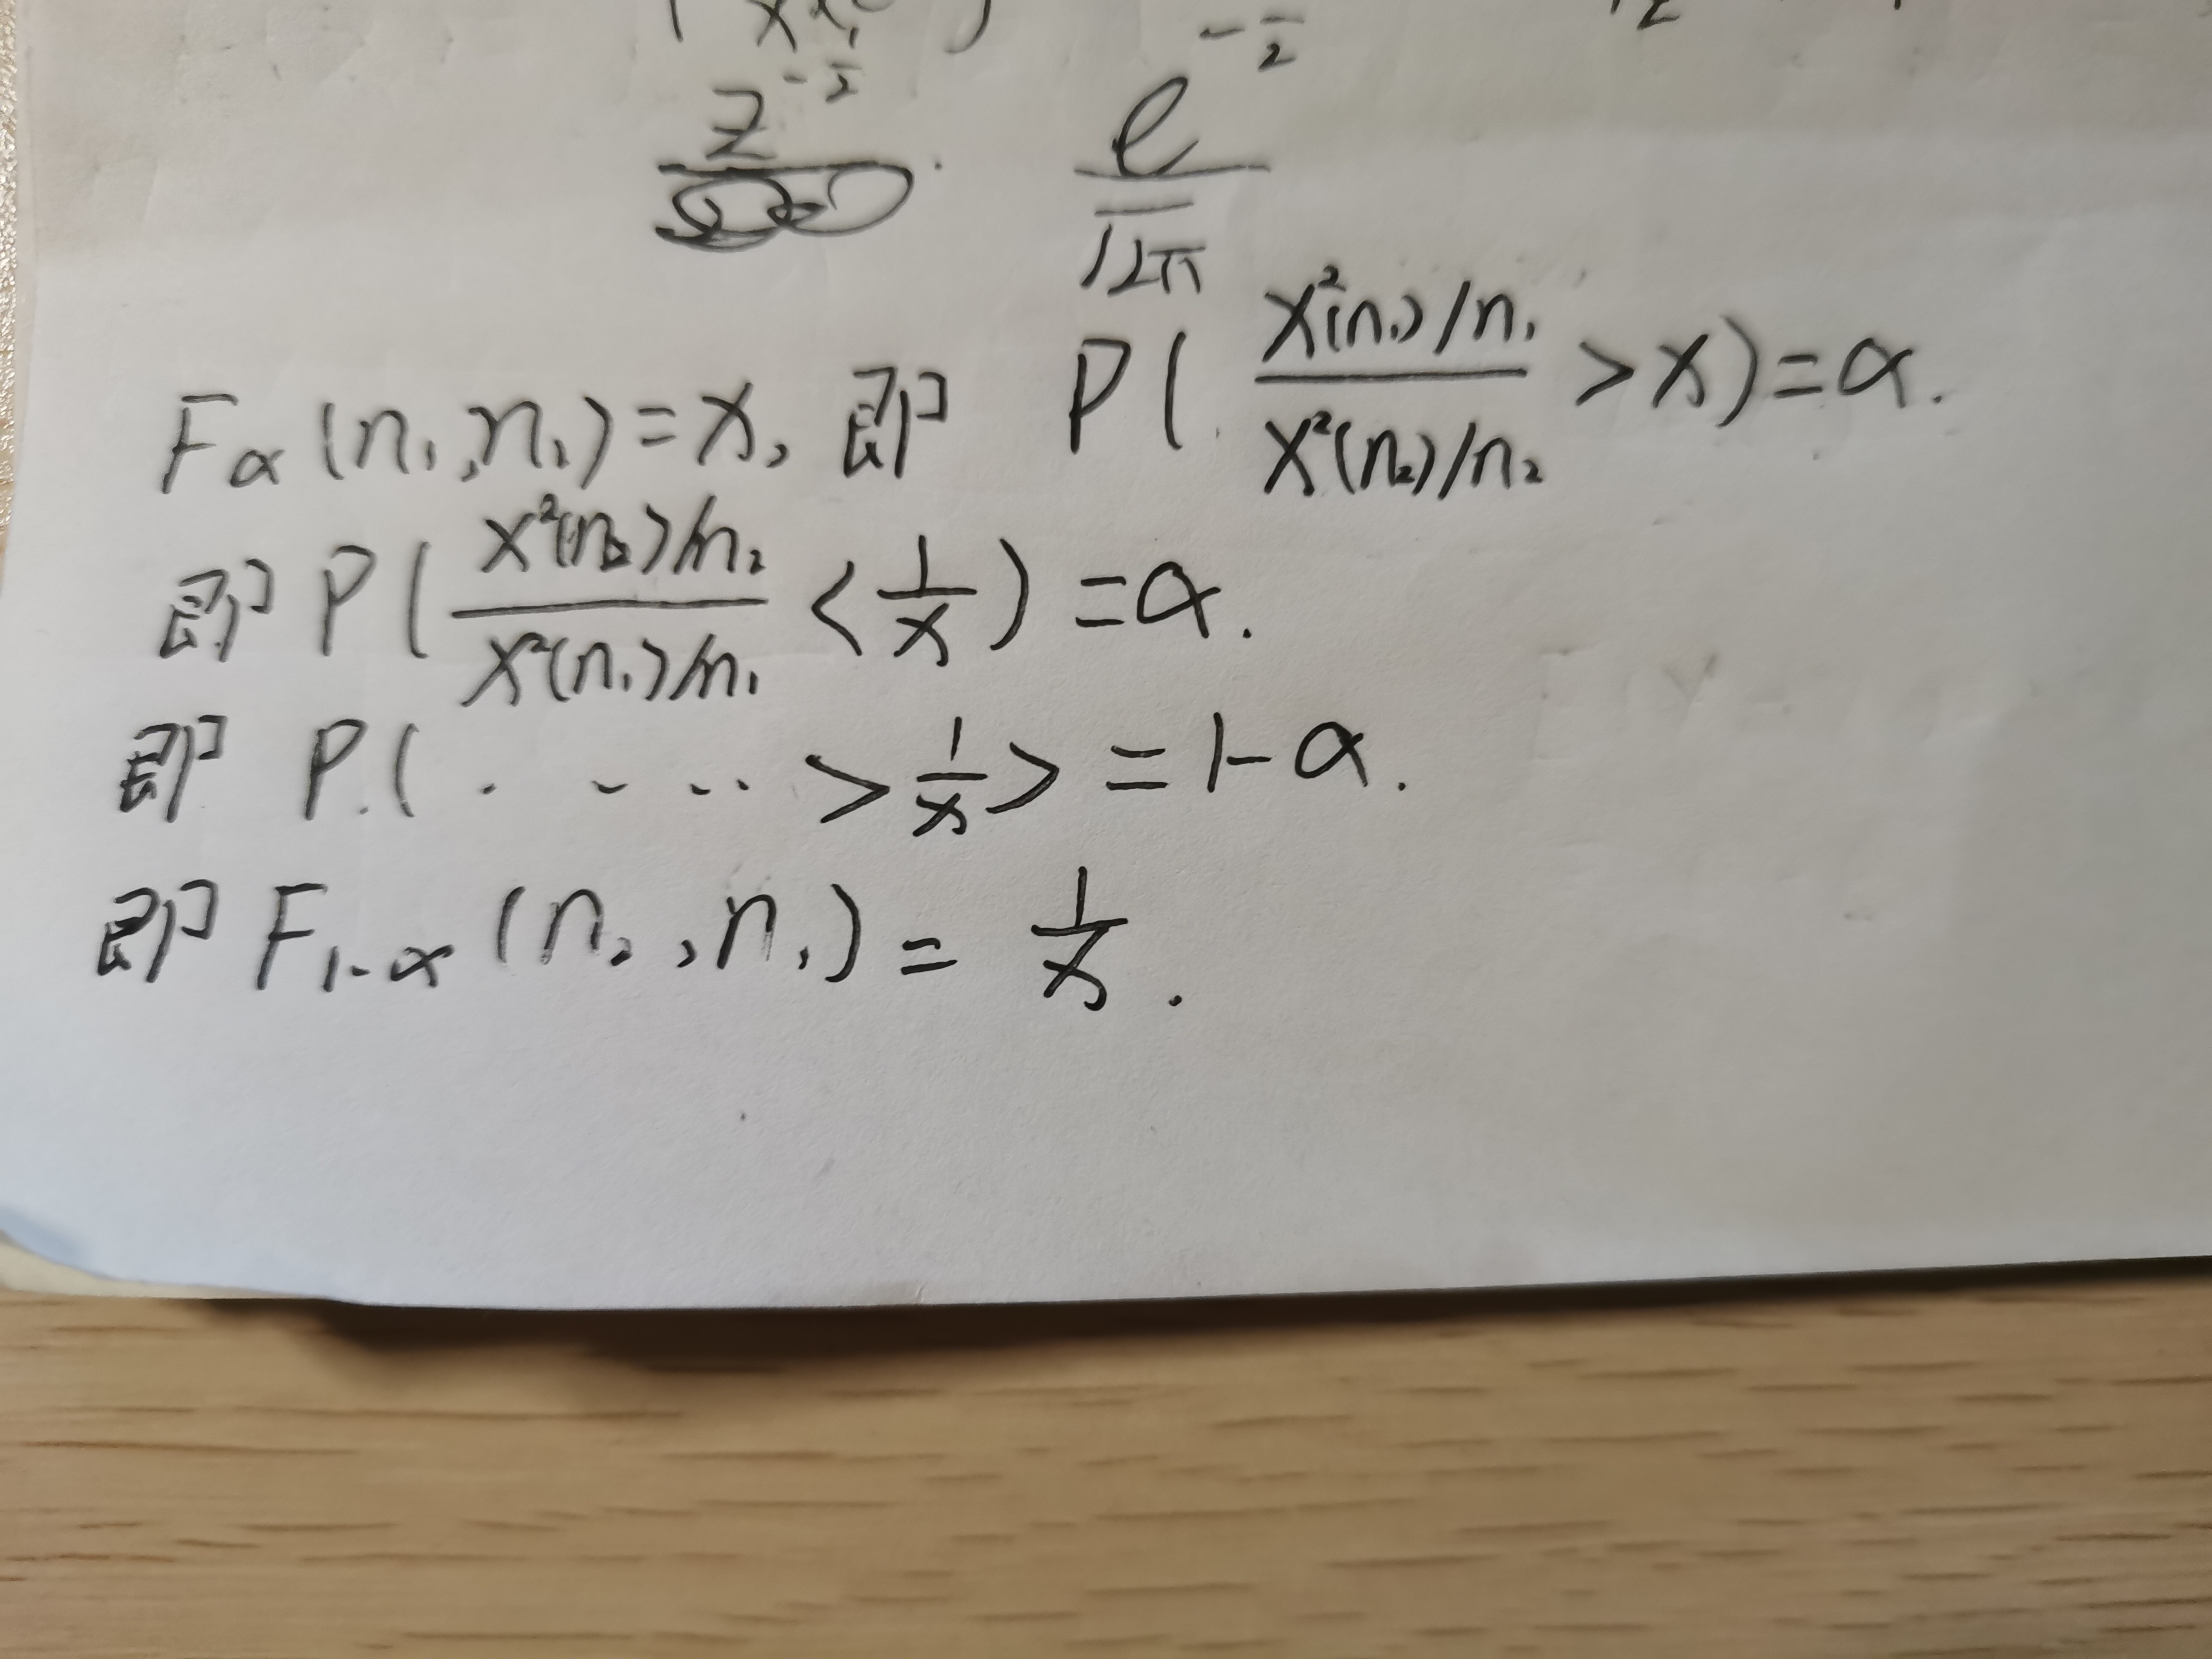 z^{-\frac{}{2}} e^{-\frac{}{2}}
√2π
F_α(n₁,n₁)=x, 即 P(\frac{X²(n₁)/n₁}{X²(n₂)/n₂}>x)=α.
即 P(\frac{X²(n₂)/n₂}{X²(n₁)/n₁}<\frac{1}{x})=α.
即 P.(. - - ... >\frac{1}{x}>=1-α.
即 F_{1-α}(n₂,n₁)=\frac{1}{x}.